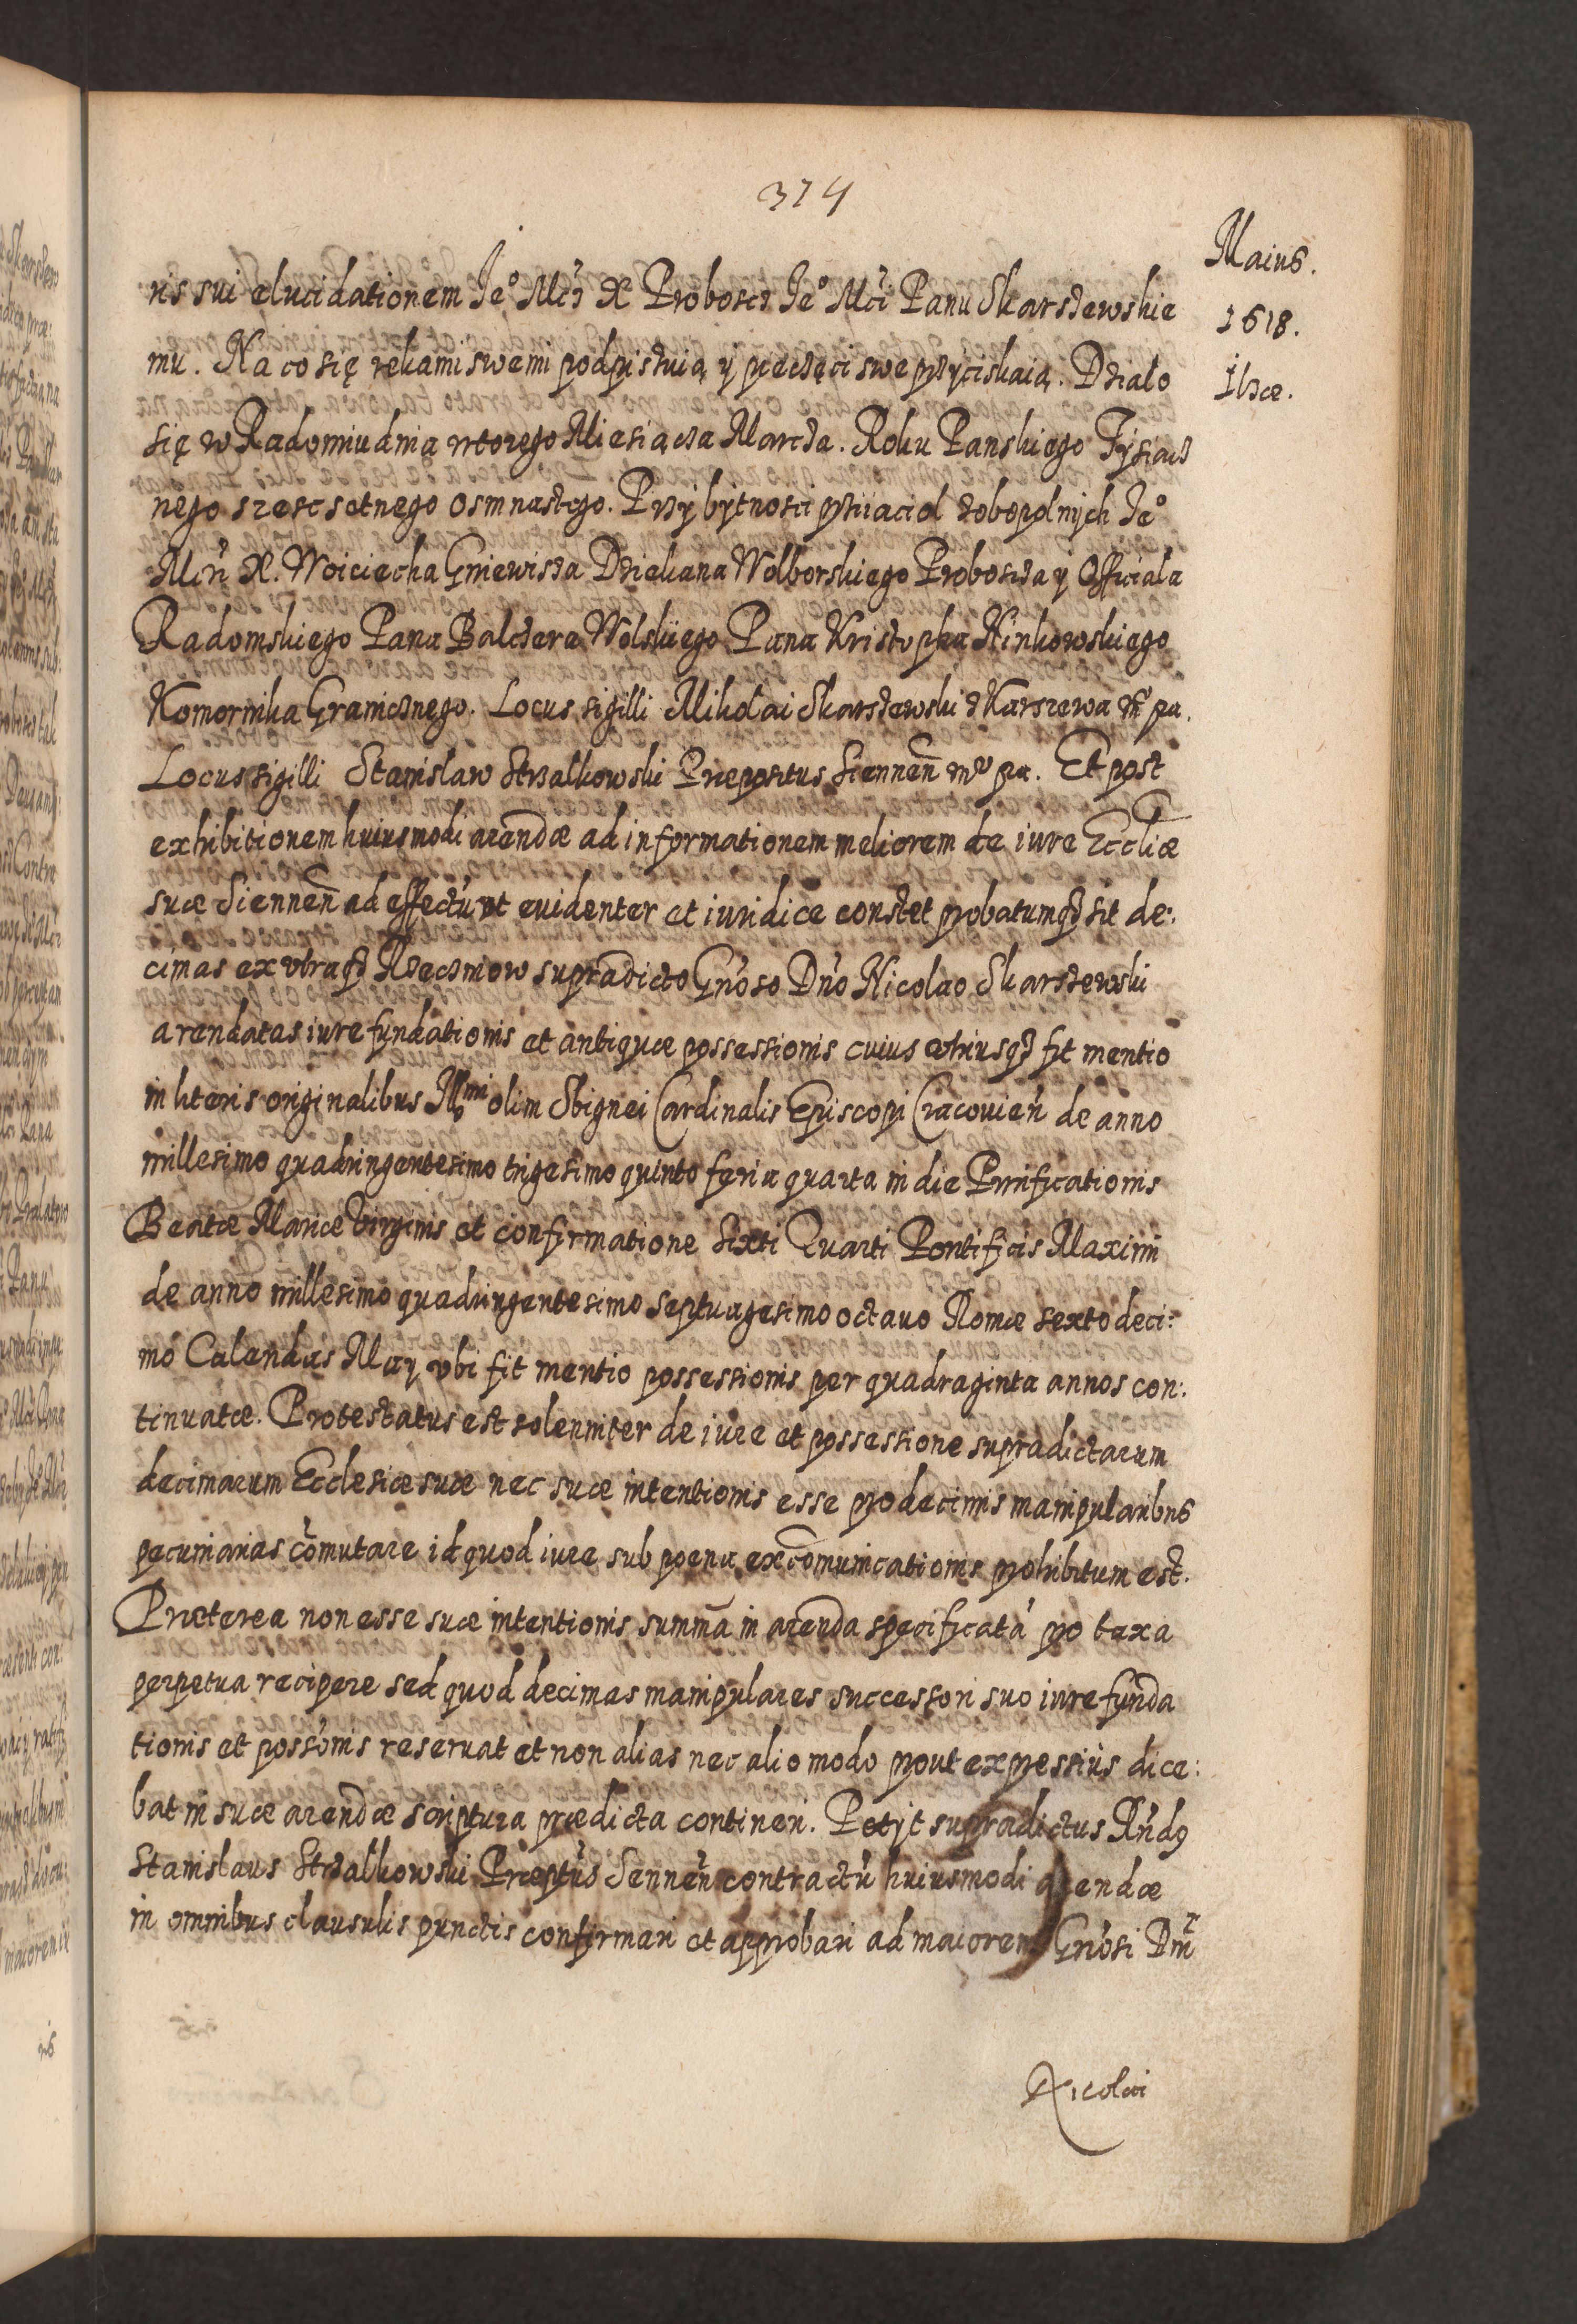 374
Maius.
1618.
Ilzæ.
ris sui elucidationem Je° Mći X Proboscz Je° Mći Panu Skarszewskie
mu. Na co się rękami swemi podpisuią y pieczęci swe przyciskaią. Działo
się w Radomiu dnia wtorego Miesiącza Marcza. Roku Panskiego Tysiącz
nego szescsetnego osmnastego. Przy bytnosci przyiaciol zobopolnych Je°
Mći X. Woiciecha Gniewisza Dziekana Wolborskiego Proboscza y Officiala
Radomskiego Pana Balczera Wolskiego Pana Krisztopha Ninkowskiego
Komornika Granicznego. Locus sigilli Mikolai Skarszewski z Karszewa mp pa.
Locus sigilli Stanislaw Strzalkowski Præpositus Siennen̄ mp pa. Et post
exhibitionem huiusmodi arendæ ad informationem meliorem de iure Eccliæ
suæ Siennen̄ ad effectū ut euidenter et iuridice constet probatumq₃ sit de:
cimas ex utraq₃ Rzeczniow supradicto Gn̄oso Dn̄o Nicolao Skarszewski
arendatas iure fundationis et antiquæ possessionis cuius utriusq₃ fit mentio
in literis originalibus Illmi olim Sbignei Cardinalis Episcopi Cracouien̄ de anno
millesimo quadringentesimo trigesimo quinto feria quarta in die Purificationis
Beatæ Mariæ Virginis et confirmatione Sixti Quarti Pontificis Maximi
de anno millesimo quadringentesimo septuagesimo octauo Romæ sexto deci:
mo Calendas May ubi fit mentio possessionis per quadraginta annos con:
tinuatæ. Protestatus est solenniter de iure et possessione supradictarum
decimarum Ecclesiæ suæ nec suæ intentionis esse pro decimis manipularibus
pecuniarias cōmutare id quod iure sub poena excōmunicationis prohibitum est.
Præterea non esse suæ intentionis summā in arenda specificatā pro taxa
perpetua recipere sed quod decimas manipulares successori suo iure funda
tionis et possōnis reseruat et non alias nec alio modo prout expressius dice:
bat in suæ arendæ scriptura prædicta contineri. Petyt supradictus Rn̄dg
Stanislaus Strzalkowski Præptūs Sennen̄ contractū huiusmodi arendæ
in omnibus clausulis punctis confirmari et approbari ad maiorem Gn̄osi Dn̄i
Nicolai